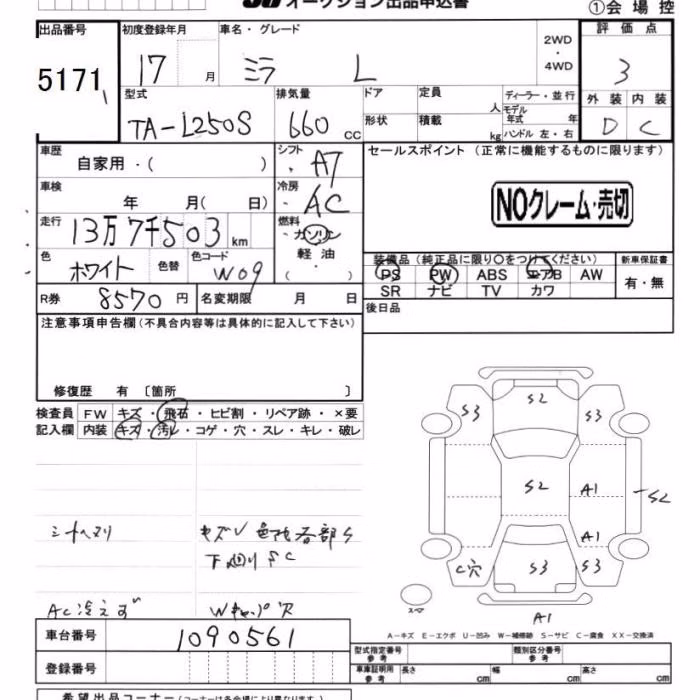 オークション出品申込書
①会場控
出品番号
5171
初度登録年月
17 月
車名・グレード
ミラ L
2WD
・
4WD
評価点
3
外装 内装
D C
型式
TA-L250S
排気量
660 cc
ドア
定員 人
形状
積載 kg
ディーラー・並行
モデル年式 年
ハンドル 左・右
車歴
自家用・( )
シフト
・AT
セールスポイント (正常に機能するものに限ります)
NOクレーム・売切
車検
年 月( 日)
冷房
・AC
走行
13万7千503 km
燃料
・ガソリン
軽油
・( )
色
ホワイト
色替
色コード
W09
装備品 (純正品に限り〇をつけてください)
新車保証書
PS PW ABS エアB AW
有・無
SR ナビ TV カワ
R券 8570 円
名変期限 月 日
後日品
注意事項申告欄 (不具合内容等は具体的に記入して下さい)
修復歴 有 〔箇所 〕
検査員 FW キズ・飛石・ヒビ割・リペア跡・×要
記入欄 内装 キズ・汚レ・コゲ・穴・スレ・キレ・破レ
S2
S3 S3
S2 A1 S2
A1
C穴 S3 S3
A1
キズU 色
各部S
下廻りSC
AC冷えず
Wキャップ欠
A-キズ E-エクボ U-凹み W-補修跡 S-サビ C-腐食 XX-交換済
車台番号
1090561
型式指定番号
参考
類別区分番号
参考
登録番号
車庫証明用
参考
長さ cm 幅 cm 高さ cm
希望出品コーナー